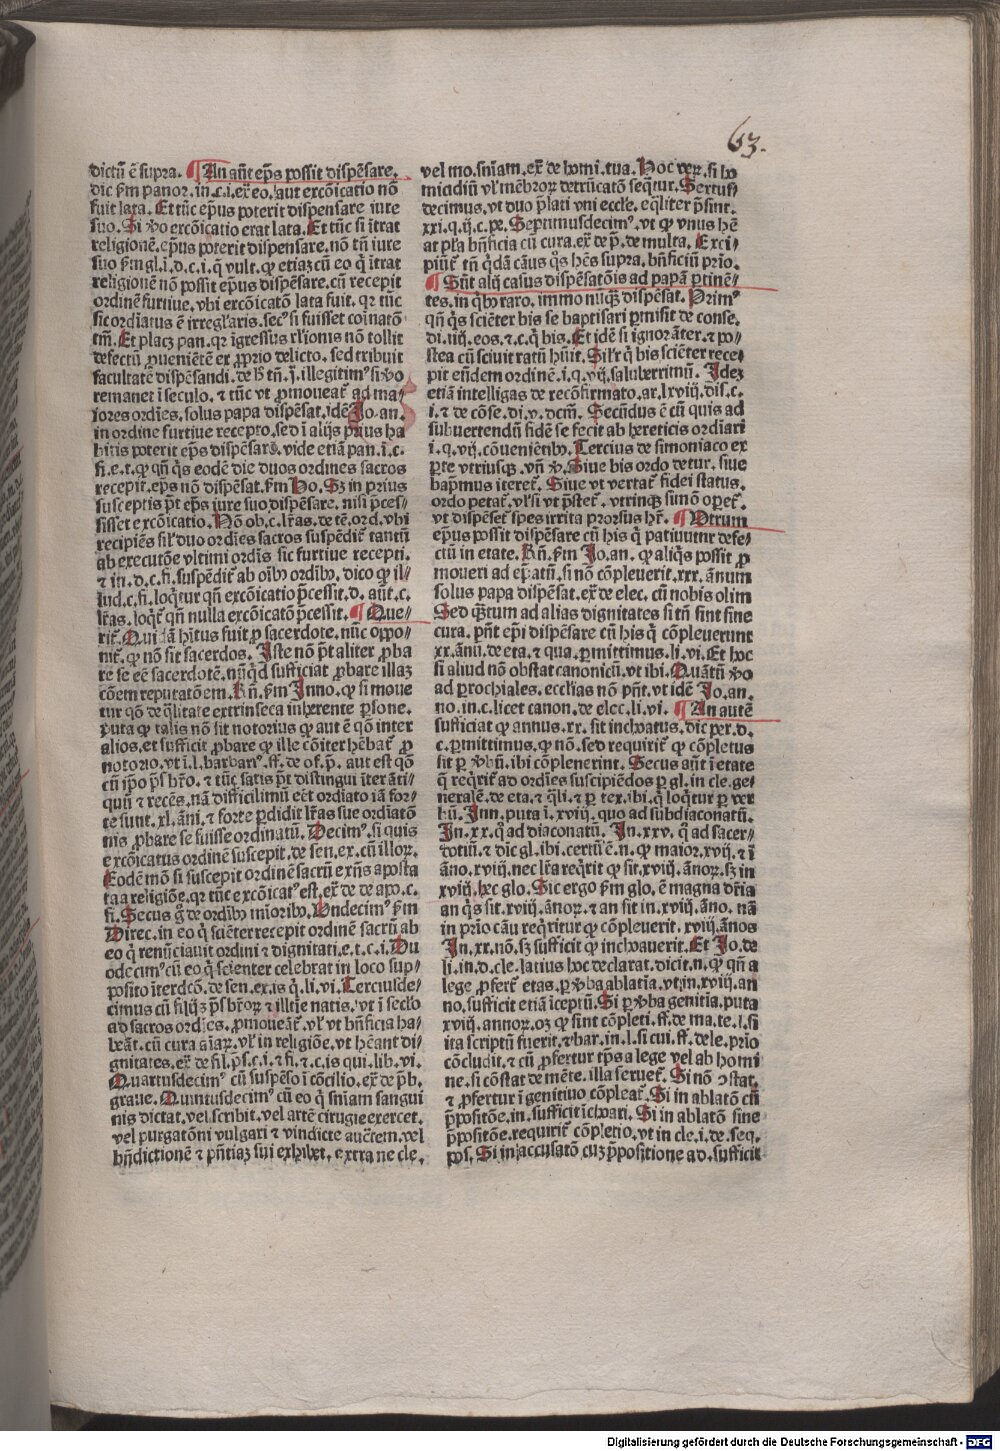 63.
dictū ē supra. ¶ An añt ep̄s possit dispēsare.
dic ẜm panor. in. c. i. ex̄ eo. aut excōicatio nō
fuit lata. Et tūc ep̄us poterit dispensare iure
suo. Si ꝟo excōicatio erat lata. Et tūc si ītrat
religionē. ep̄us poterit dispensare. nō tñ iure
suo ẜm gl. i. d. c. i. q̄ vult. ꝙ etiaz cū eo q̄ ītrat
religionē nō possit ep̄us dispēsare. cū recepit
ordinē furtiue. vbi excōicatō lata fuit. qr tūc
sic ordīatus ē irreg̃laris. secꝰ si fuisset cōinatō
tm̄. Et placz pan. qr īgressus rl̓ionis nō tollit
defectū ꝓuenietē ex ꝓprio delicto. sed tribuit
facultatē dispēsandi. de h̄ tñ. j. illegitimꝰ si ꝟo
remanet ī seculo. ⁊ tūc vt ꝓmoueat̄ ad ma/
iores ordīes. solus papa dispēsat. idē Jo. an.
in ordine furtiue recepto. sed ī alijs prius ha
bitis poterit ep̄s dispēsare. vide etiā pan. ī. c.
fi. e. t. ꝙ qñ q̄s eodē die duos ordines sacros
recepit. ep̄s nō dispēsat. ẜm Ho. Sz in prius
susceptis p̄t ep̄s iure suo dispēsare. nisi p̄ces/
sisset excōicatio. Nō ob. c. lr̄as. de tē. ord. vbi
recipiēs sil̓ duo ordīes sacros suspēdit̄ tantū
ab executōe vltimi ordīs sic furtiue recepti.
⁊ in. d. c. fi. suspēdit̄ ab oībꝰ ordībꝰ. dico ꝙ il/
lud. c. fi. loq̄tur qñ excōicatio p̄cessit. d. aūt. c.
lr̄as. loq̄t̄ qñ nulla excōicatō p̄cessit. ¶ Que/
rit̄. Quidā hītus fuit ꝓ sacerdote. nūc oppo/
nit̄. ꝙ nō sit sacerdos. Iste nō p̄t aliter ꝓba
re se eē sacerdotē. nūqd̄ sufficiat ꝓbare illaz
cōem reputatōem. Rñ. ẜm Inno. ꝙ si moue
tur qō de q̄litate extrinseca inherente ꝑsone.
puta ꝙ talis nō sit notorius ꝙ aut ē qō inter
alios. et sufficit ꝓbare ꝙ ille cōiter hēbat̄ ꝓ
notorio. vt ī. l. barbariꝰ. ff. de of. p̄. aut est qō
cū ip̄o p̄sbr̄o. ⁊ tūc satis p̄t distingui īter āti/
quū ⁊ recēs. nā difficilimū eēt ordīato iā for/
te sunt. xl. āni. ⁊ forte ꝑdidit lr̄as sue ordīatō
nis ꝓbare se fuisse ordinatū. Decimꝰ. si quis
excōicatus ordinē suscepit. de sen. ex. cū illoꝝ.
Eodē mō si suscepit ordinē sacrū exñs aposta
ta a religiōe. qr tūc excōicatꝰ est. ex̄ de de apo. c.
fi. Secus g̊ de ordībꝰ mīoribꝰ. Undecimꝰ ẜm
Direc. in eo q̄ sciēter recepit ordinē sacrū ab
eo q̄ renūciauit ordini ⁊ dignitati. e. t. c. i. Du
odecimꝰ cū eo q̄ scienter celebrat in loco sup/
posito īterdcō. de sen. ex. is q̄. li. vi. Terciusde/
cimus cū filijs p̄sbr̄oꝝ ⁊ illtie natis. vt ī secl̓o
ad sacros ordīes. ꝓmoueāt̄. vl̓ vt bñficia ha/
beāt. cū cura aīaꝝ. vl̓ in religiōe. vt hēant di/
gnitates. ex̄ de fil. p̄s. c. i. ⁊ fi. ⁊ c. is qui. lib. vi.
Quartusdecimꝰ cū suspēso ī cōcilio. ex̄ de p̄b.
graue. Quintusdecimꝰ cū eo q̄ sniam sangui
nis dictat. vel scribit. vel artē cirugie exercet.
vel purgatōni vulgari ⁊ vindicte auctem. vel
bñdictionē ⁊ pñtiaz sui exhibet. extra ne cle.
vel mo. sniam. ex̄ de homi. tua. Hoc ver̄. si ho
miadiū vl̓ mēbroꝝ detrūcatō seq̄tur. Sextus
decimus. vt duo p̄lati vni eccl̓e. eq̄liter p̄sint.
xxi. q. ij. c. pe. Septimusdecimꝰ. vt ꝙ vnus hē
at pl̓a bñficia cū cura. ex̄ de p̄. de multa. Exci/
piūt̄ tñ q̄dā cāus q̄s hēs supra. bñficiū prīo.
¶ Sūt alij casus dispēsatōis ad papā ꝑtinē/
tes. in q̄bꝰ raro. immo nūq̄ dispēsat. Primꝰ
qñ q̄s sciēter bis se baptisari ꝑmisit de conse.
di. iiij. eos. ⁊ c. q̄ bis. Et idē si ignorāter. ⁊ po/
stea cū sciuit ratū hūit. Silr̄ q̄ bis sciēter rece/
pit eūdem ordinē. i. q. vij. saluberrimū. Idez
etiā intelligas de recōfirmato. ar. lxviij. dis. c.
i. ⁊ de cōse. di. v. dcm̄. Secūdus ē cū quis ad
subuertendū fidē se fecit ab hereticis ordīari
i. q. vij. cōuenientibꝰ. Tercius de simoniaco ex
ꝑte vtriusqꝫ. vñ ꝟ. Siue bis ordo detur. siue
bapmus iteret̄. Siue vt vertat̄ fidei status.
ordo petat̄. vl̓ si vt p̄stet̄. vtrinqꝫ simō oꝑet̄.
vt dispēset̄ spes irrita prorsus hr̄. ¶ Utrum
ep̄us possit dispēsare cū his q̄ patiuntur defe/
ctū in etate. Rñ. ẜm Jo. an. ꝙ aliq̄s possit ꝓ
moueri ad ep̄atū. si nō cōpleuerit. xxx. ānum
solus papa dispēsat. ex̄ de elec. cū nobis olim
Sed q̄ntum ad alias dignitates si tñ sint sine
cura. pñt ep̄i dispēsare cū his q̄ cōpleuerunt
xx. ānū. de eta. ⁊ qua. ꝑmittimus. li. vi. Et hoc
si aliud nō obstat canonicū. vt ibi. Quātū ꝟo
ad ꝑrochiales. eccl̓ias nō pñt. vt idē Jo. an.
no. in. c. licet canon. de elec. li. vi. ¶ An autē
sufficiat ꝙ annus. xx. sit inchoatus. dic per. d.
c. ꝑmittimus. ꝙ nō. sed requirit̄ ꝙ cōpletus
sit ꝑ ꝟbū. ibi cōpleuerint. Secus aūt ī etate
q̄ reqrit̄ ad ordīes suscipiēdos ꝑ gl. in cle. ge/
neralē. de eta. ⁊ q̄li. ⁊ ꝑ tex. ibi. q̄ loq̄tur ꝑ ver
bū. Inn. puta ī. xviij. quo ad subdiaconatū.
In. xx. q̊ ad diaconatū. In. xxv. q̊ ad sacer/
dotiū. ⁊ dic gl. ibi. certū ē. n. ꝙ maior. xvij. ⁊ ī
āno. xviij. nec lr̄a req̄rit ꝙ sit. xviij. ānoꝝ. sz in
xviij. hec glo. Sic ergo ẜm glo. ē magna dr̄ia
an q̄s sit. xviij. ānoꝝ. ⁊ an sit in. xviij. āno. nā
in prīo cāu req̄ritur ꝙ cōpleuerit. xviij. ānos
In. xx. nō. sz sufficit ꝙ inchoauerit. Et Jo. de
li. in. d. cle. latius hoc declarat. dicit. n. ꝙ qñ a
lege ꝓfert̄ etas. ꝑ ꝟba ablatīa. vt in. xviij. an
no. sufficit etiā īceptū. Si ꝑ ꝟba genitīa. puta
xviij. annoꝝ. oz ꝙ sint cōpleti. ff. de ma. te. l. si
ita scriptū fuerit. ⁊ bar. in. l. si cui. ff. de le. prīo
cōcludit. ⁊ cū ꝓfertur tp̄s a lege vel ab homi
ne. si cōstat de mēte. illa seruet̄. Si nō ꝯstat.
⁊ ꝓfertur ī genitiuo cōpleat̄. Si in ablatō cū
p̄positōe. in. sufficit īchoari. Si in ablatō sine
p̄positōe. requirit̄ cōpletio. vt in cle. i. de seq.
pos. Si in accusatō cuz p̄positione ad. sufficit
Digitalisierung gefördert durch die Deutsche Forschungsgemeinschaft - DFG